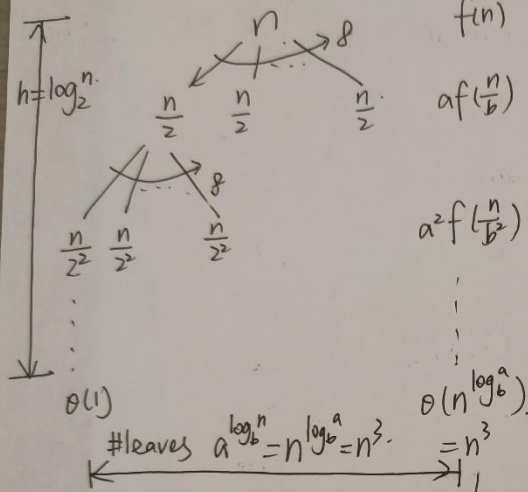 n 8 f(n)
h=log₂ⁿ.
n/2 n/2 n/2. af(n/b)
8
n/2² n/2² n/2² a²f(n/b²)
θ(1) θ(n^(log_b^a)).
#leaves a^(log_b^n) = n^(log_b^a) = n³. = n³